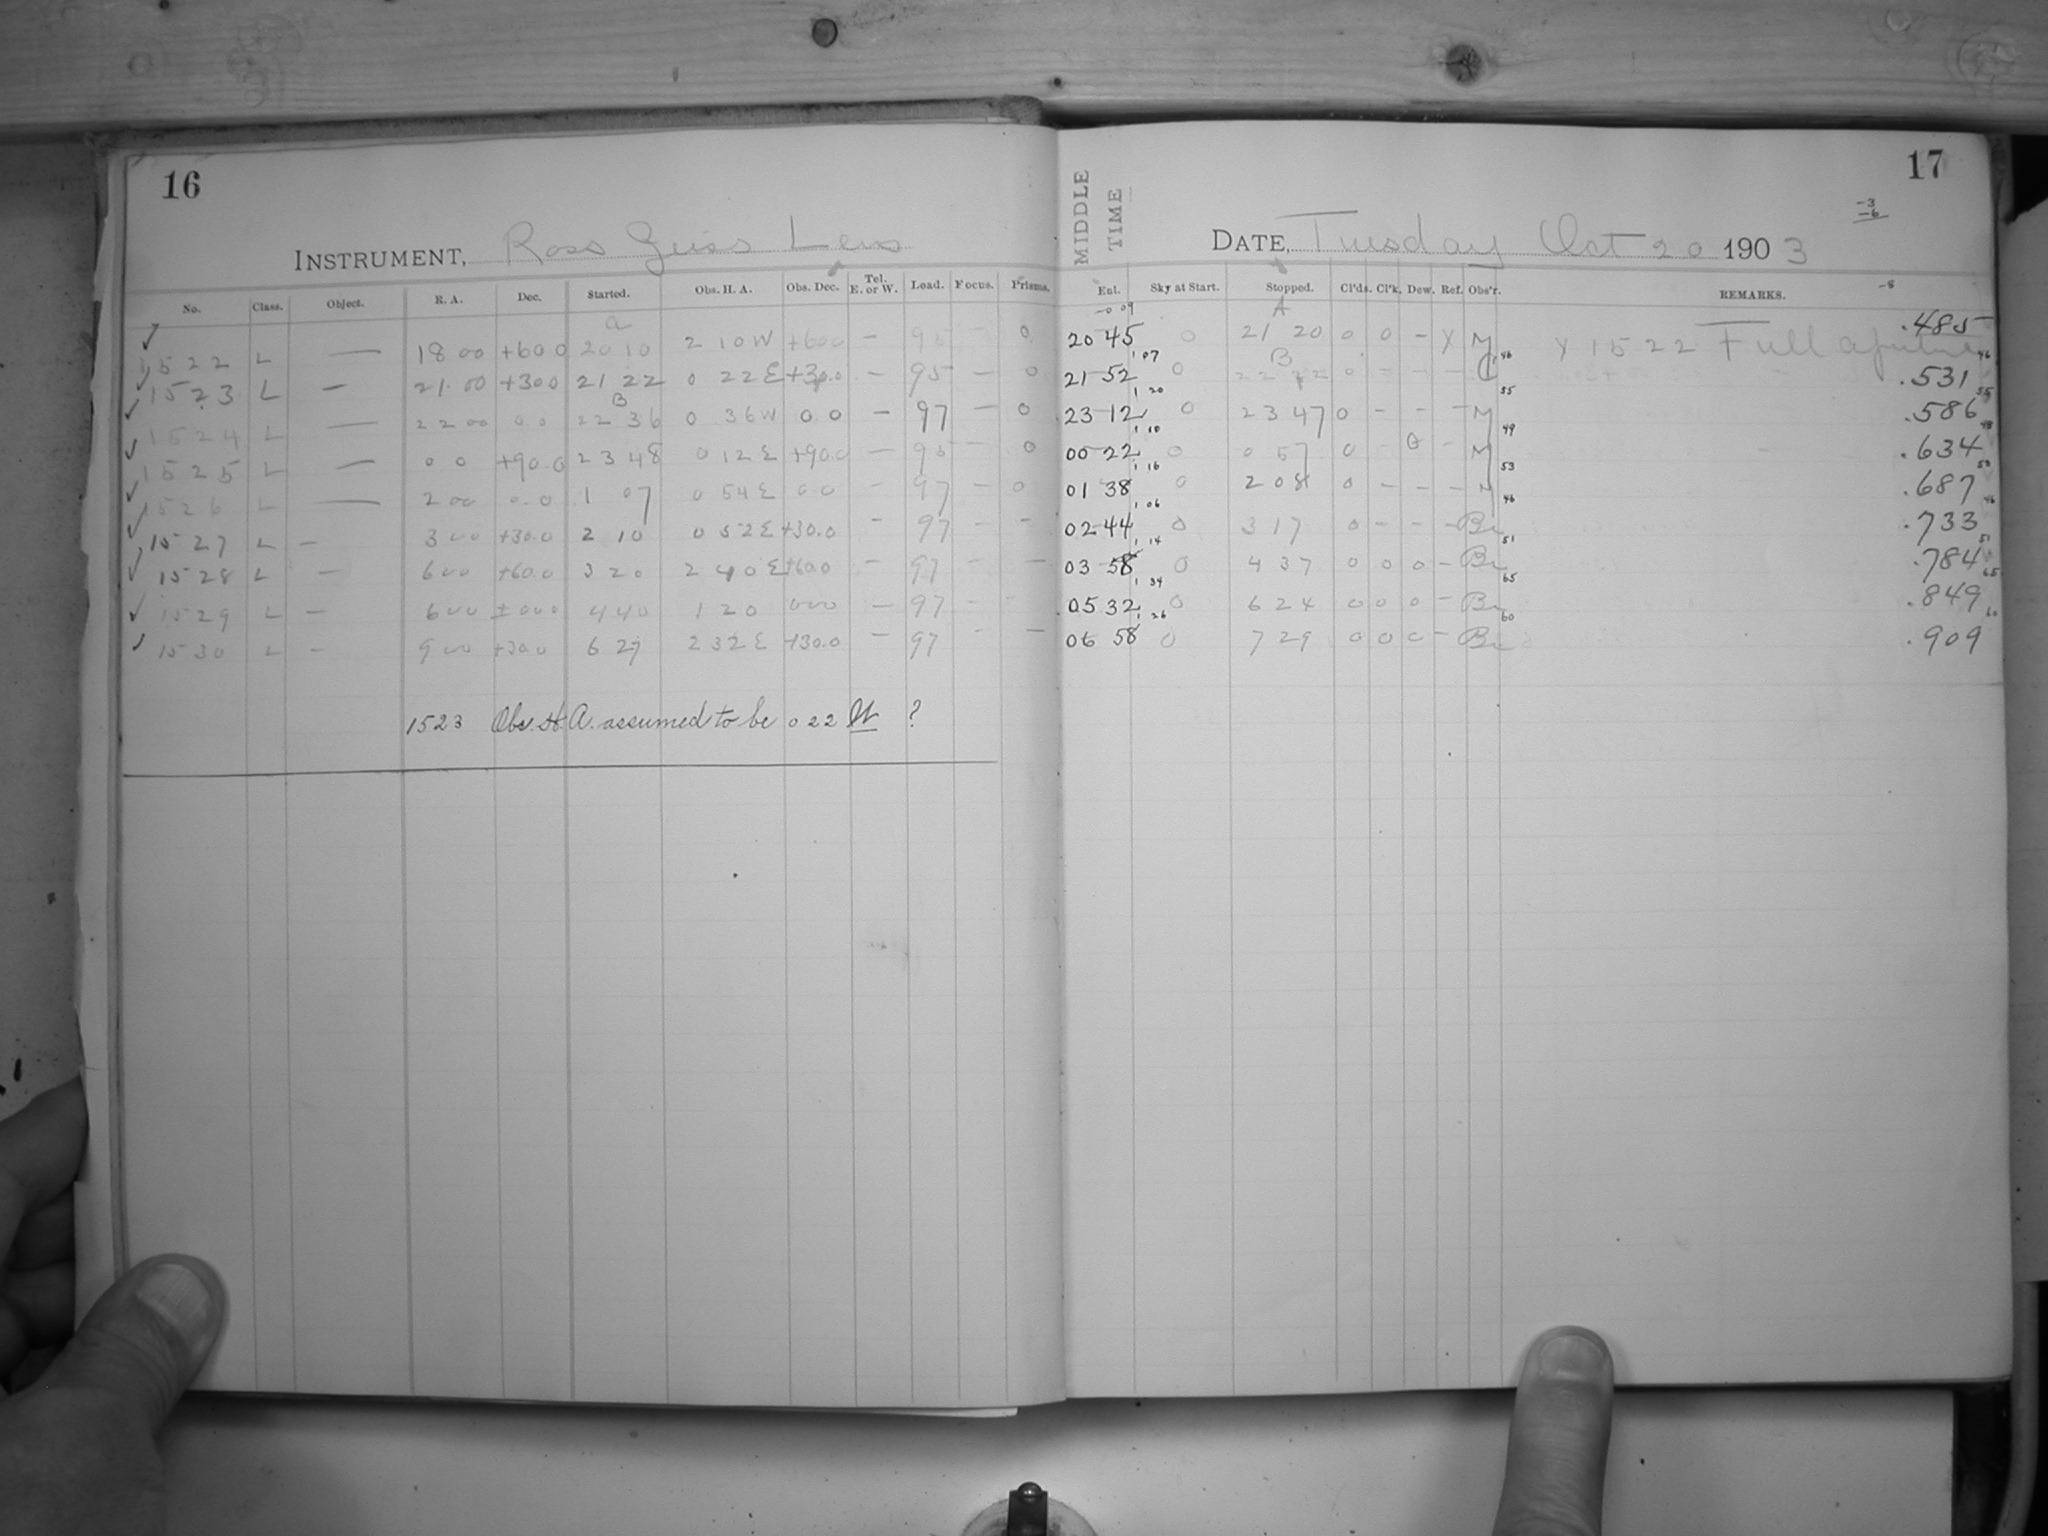 16
INSTRUMENT, Ross Zeiss Lens
No. Class. Object. R. A. Dec. Started. Obs. H. A. Obs. Dec. Tel. E. or W. Load. Focus. Prisms.
a
1522 L — 18 00 +60 0 20 10 2 10 W +60 0 — 95 - 0
1523 L — 21 00 +30 0 21 22 0 22 E +30.0 — 95 — 0
B
1524 L — 22 00 0.0 22 36 0 36 W 0.0 — 97 — 0
1525 L — 0 0 +90.0 23 48 0 12 E +90.0 — 95 — 0
1526 L — 2 00 0.0 1 07 0 54 E 0 0 — 97 — 0
1527 L — 3 00 +30.0 2 10 0 52 E +30.0 — 97 — —
1528 L — 6 00 +60.0 3 20 2 40 E +60.0 — 97 — —
1529 L — 6 00 ±0 00 4 40 1 20 0 00 — 97 -
1530 L — 9 00 +30.0 6 27 2 32 E +30.0 — 97 - —
1523 Obs. H. A. assumed to be 0 22 W ?
17
-3
-6
MIDDLE TIME
DATE, Tuesday Oct 20 1903
Ent. Sky at Start. Stopped. Cl'ds. Cl'k. Dew. Ref. Obs'r. REMARKS.
-8
-0 09 A
20 45 0 21 20 0 0 — Y M Y 1522 Full aperture .485
1 07 B 46 46
21 52 0 22 32 0 - - - C .531
1 20 55 55
23 12 0 23 47 0 - - - M .586
1 10 49 48
00 22 0 0 57 0 - 0 - M .634
1 16 53 53
01 38 0 2 08 0 - - - M .687
1 06 46 46
02 44 0 3 17 0 - - - Br .733
1 14 51 51
03 58 0 4 37 0 0 0 - Br .784
1 34 65 65
05 32 0 6 24 0 0 0 - Br .849
1 26 60 60
06 58 0 7 29 0 0 0 - Br .909